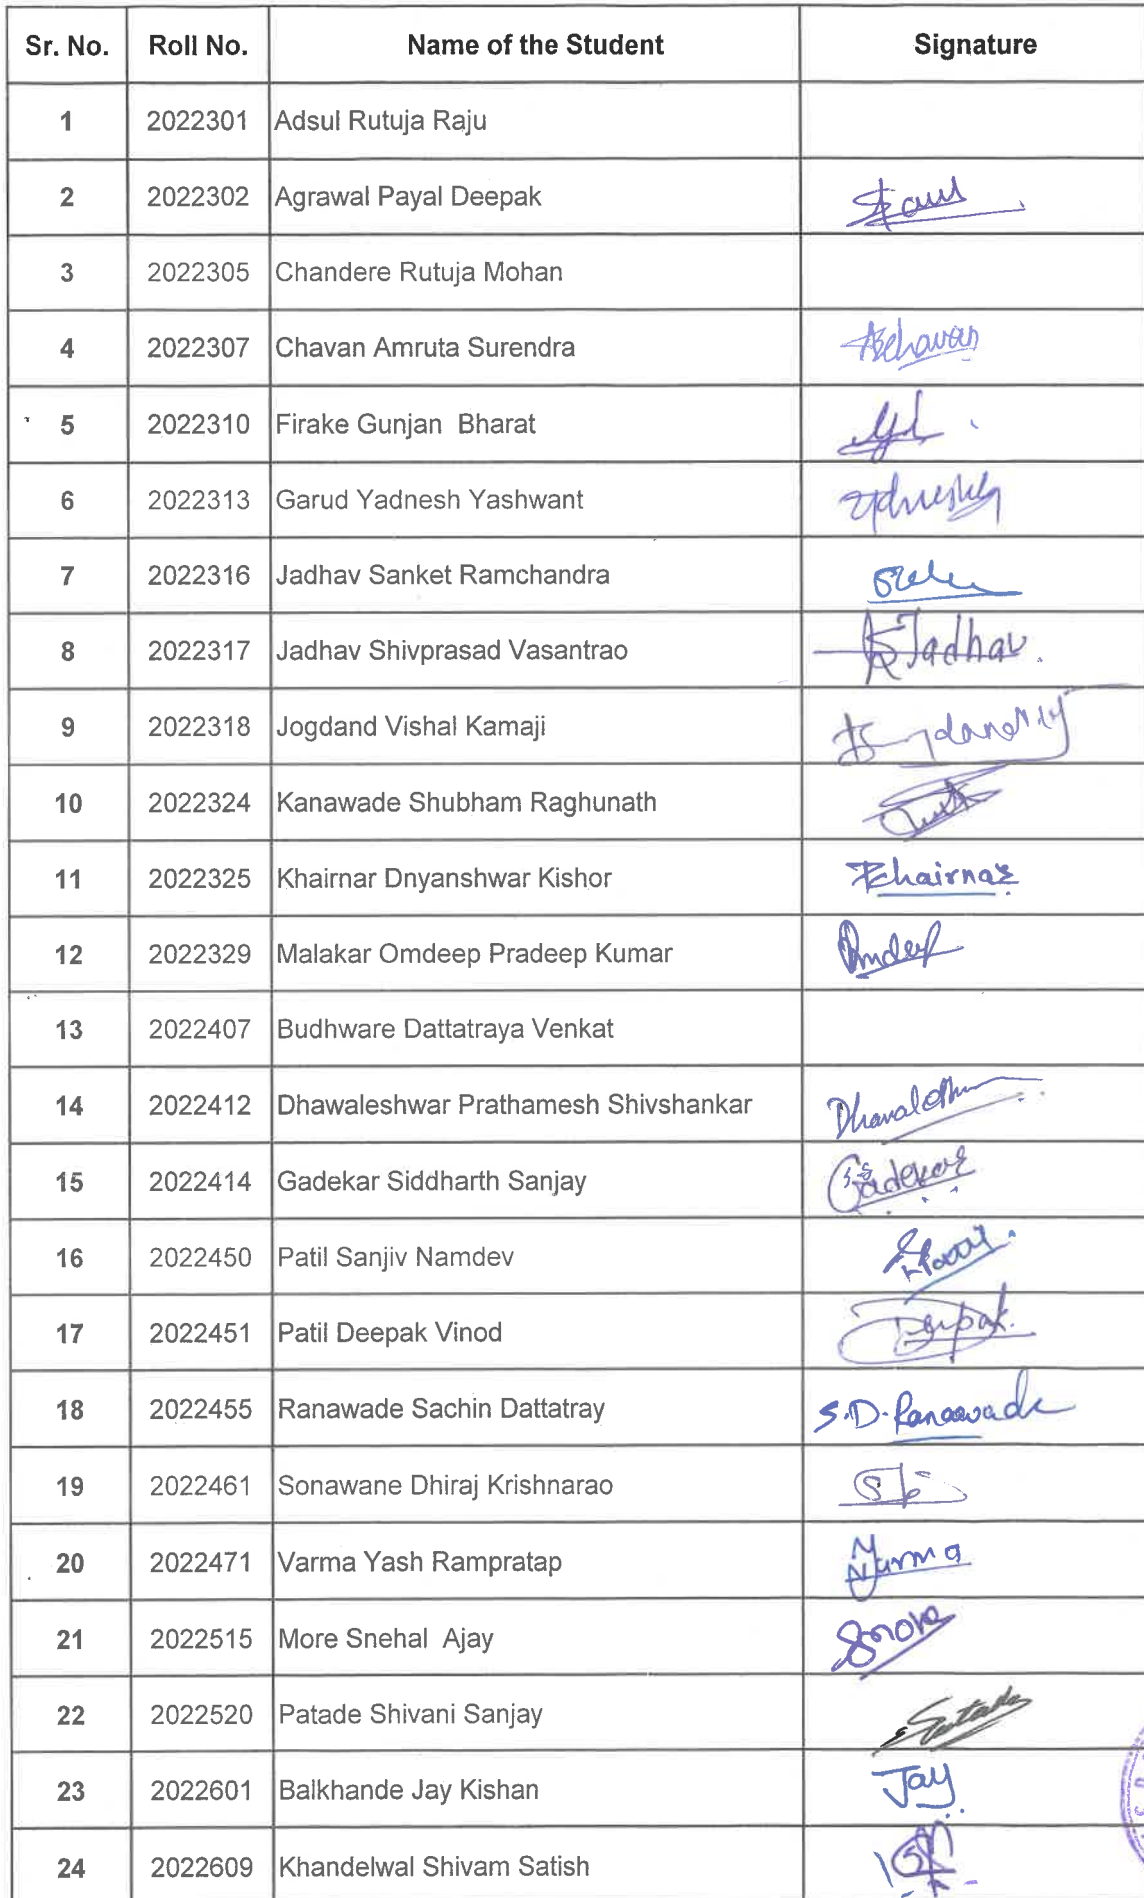 Sr. No. Roll No. Name of the Student Signature
1 2022301 Adsul Rutuja Raju
2 2022302 Agrawal Payal Deepak
3 2022305 Chandere Rutuja Mohan
4 2022307 Chavan Amruta Surendra
5 2022310 Firake Gunjan Bharat
6 2022313 Garud Yadnesh Yashwant
7 2022316 Jadhav Sanket Ramchandra
8 2022317 Jadhav Shivprasad Vasantrao Jadhav.
9 2022318 Jogdand Vishal Kamaji
10 2022324 Kanawade Shubham Raghunath
11 2022325 Khairnar Dnyanshwar Kishor Khairnar
12 2022329 Malakar Omdeep Pradeep Kumar Omdeep
13 2022407 Budhware Dattatraya Venkat
14 2022412 Dhawaleshwar Prathamesh Shivshankar
15 2022414 Gadekar Siddharth Sanjay Gadekar
16 2022450 Patil Sanjiv Namdev
17 2022451 Patil Deepak Vinod Deepak.
18 2022455 Ranawade Sachin Dattatray S.D. Ranawade
19 2022461 Sonawane Dhiraj Krishnarao
20 2022471 Varma Yash Rampratap Varma
21 2022515 More Snehal Ajay Smore
22 2022520 Patade Shivani Sanjay
23 2022601 Balkhande Jay Kishan Jay
24 2022609 Khandelwal Shivam Satish